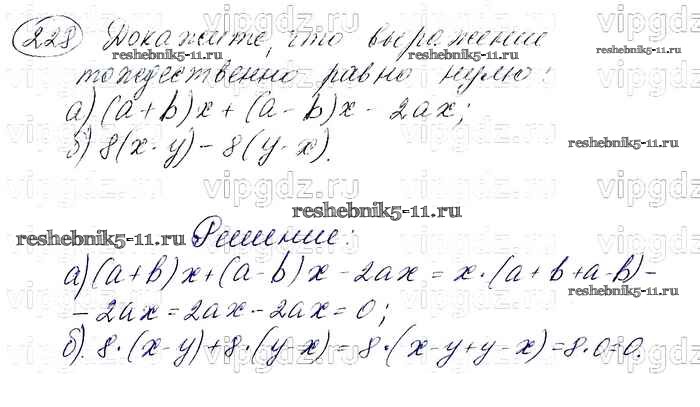 228 Докажите, что выражение
тождественно равно нулю:
а) (a + b)x + (a - b)x - 2ax;
б) 8(x - y) - 8(y - x).
Решение:
а) (a + b)x + (a - b)x - 2ax = x · (a + b + a - b) -
- 2ax = 2ax - 2ax = 0;
б). 8 · (x - y) + 8 · (y - x) = 8 · (x - y + y - x) = 8 · 0 = 0.
vipgdz.ru
reshebnik5-11.ru